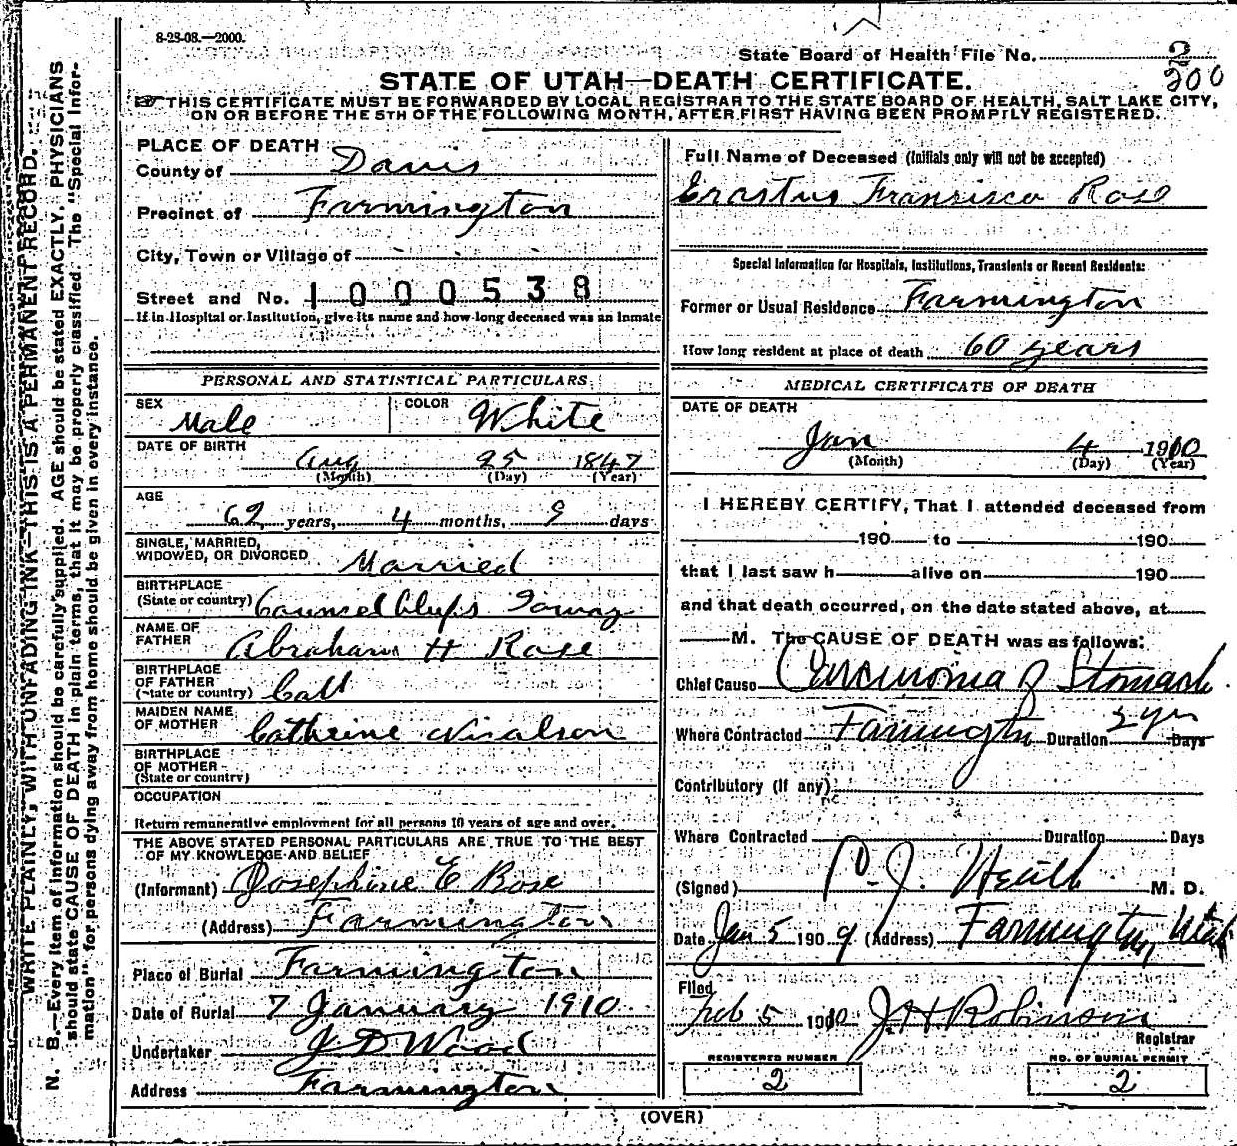 8-28-08.—2000.
State Board of Health File No. 2
200
STATE OF UTAH—DEATH CERTIFICATE.
☞THIS CERTIFICATE MUST BE FORWARDED BY LOCAL REGISTRAR TO THE STATE BOARD OF HEALTH, SALT LAKE CITY,
ON OR BEFORE THE 5TH OF THE FOLLOWING MONTH, AFTER FIRST HAVING BEEN PROMPTLY REGISTERED.
WRITE PLAINLY, WITH UNFADING INK—THIS IS A PERMANENT RECORD.
N. B.—Every item of information should be carefully supplied. AGE should be stated EXACTLY. PHYSICIANS
should state CAUSE OF DEATH in plain terms, that it may be properly classified. The "Special Infor-
mation" for persons dying away from home should be given in every instance.
PLACE OF DEATH
County of Davis
Precinct of Farmington
City, Town or Village of
Street and No. 1000538
If in Hospital or Institution, give its name and how long deceased was an Inmate
PERSONAL AND STATISTICAL PARTICULARS
SEX Male COLOR White
DATE OF BIRTH
Aug 25 1847
(Month) (Day) (Year)
AGE
62 years, 4 months, 9 days
SINGLE, MARRIED,
WIDOWED, OR DIVORCED Married
BIRTHPLACE
(State or country) Counsel Clups Ioway
NAME OF
FATHER Abraham H Rose
BIRTHPLACE
OF FATHER
(State or country)
MAIDEN NAME
OF MOTHER Cathrine
BIRTHPLACE
OF MOTHER
(State or country)
OCCUPATION
Return remunerative employment for all persons 10 years of age and over.
THE ABOVE STATED PERSONAL PARTICULARS ARE TRUE TO THE BEST
OF MY KNOWLEDGE AND BELIEF
(Informant) Josephine E Rose
(Address) Farmington
Place of Burial Farmington
Date of Burial 7 January 1910
Undertaker J D Wood
Address Farmington
Full Name of Deceased (Initials only will not be accepted)
Erastus Fransisco Rose
Special Information for Hospitals, Institutions, Transients or Recent Residents:
Former or Usual Residence Farmington
How long resident at place of death 60 years
MEDICAL CERTIFICATE OF DEATH
DATE OF DEATH
Jan 4 1910
(Month) (Day) (Year)
I HEREBY CERTIFY, That I attended deceased from
190 to 190
that I last saw h alive on 190
and that death occurred, on the date stated above, at
M. The CAUSE OF DEATH was as follows:
Chief Cause Carcinoma of Stomach
Where Contracted Farmington Duration 2 yrs Days
Contributory (if any)
Where Contracted Duration Days
(Signed) J. M. D.
Date Jan 5 1909 (Address) Farmington, Utah
Filed
Feb 5 1910 J. H Robinson
Registrar
REGISTERED NUMBER
2
NO. OF BURIAL PERMIT
2
(OVER)